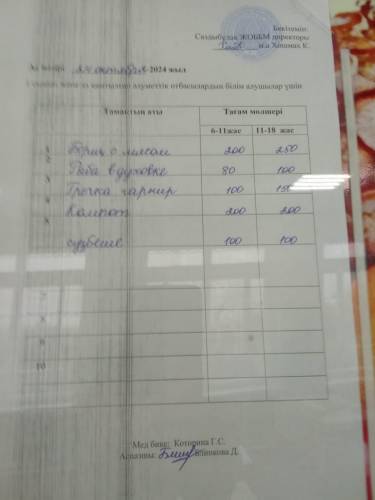 Бекітемін:
Саздыбұлақ ЖОББМ директоры
м.а Хинаиах К.
Ас мәзірі 24 октября 2024 жыл
әлеуметтік отбасылардың білім алушылар үшін
Тамақтың аты Тағам мөлшері
6-11жас 11-18 жас
1 Борщ с мясом 200 250
2 Рыба в духовке 80 100
3 Гречка гарнир 100 150
4 Компот 200 200
5
100 100
7
8
9
10
Мед бике: Которина Г.С.
Аспазшы: Блинова Д.